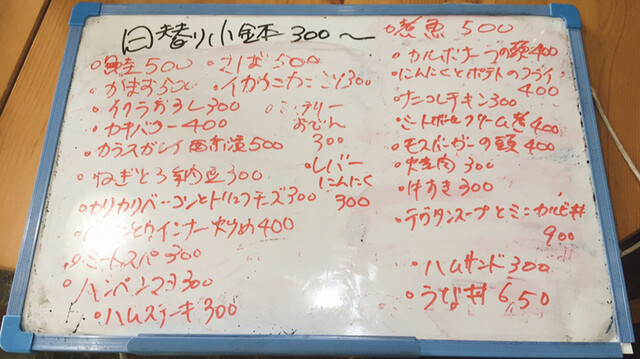 日替り小鉢 300〜
・鮭 500 ・さば 500
・かます 500 ・イカウニカニミソ 300
・イクラおろし 300
・カキバター 400
・カラスガレイ西京漬 500
・ミステリー
おでん
300
・ねぎとろ納豆 300
・レバー
にんにく
300
・カリカリベーコンとトリュフチーズ 300
とウインナー炒め 400
・ミートスパ 300
・ハンペンマヨ 300
・ハムステーキ 300
・煮魚 500
・カルボナーラの頭 400
・にんにくとポテトのフライ
400
・ナンコレチキン 300
・ミートボールクリーム煮 400
・モスバーガーの頭 400
・焼肉 300
・牛すき 300
・テグタンスープとミニカルビ丼
900
・ハムサンド 300
・うな丼 650